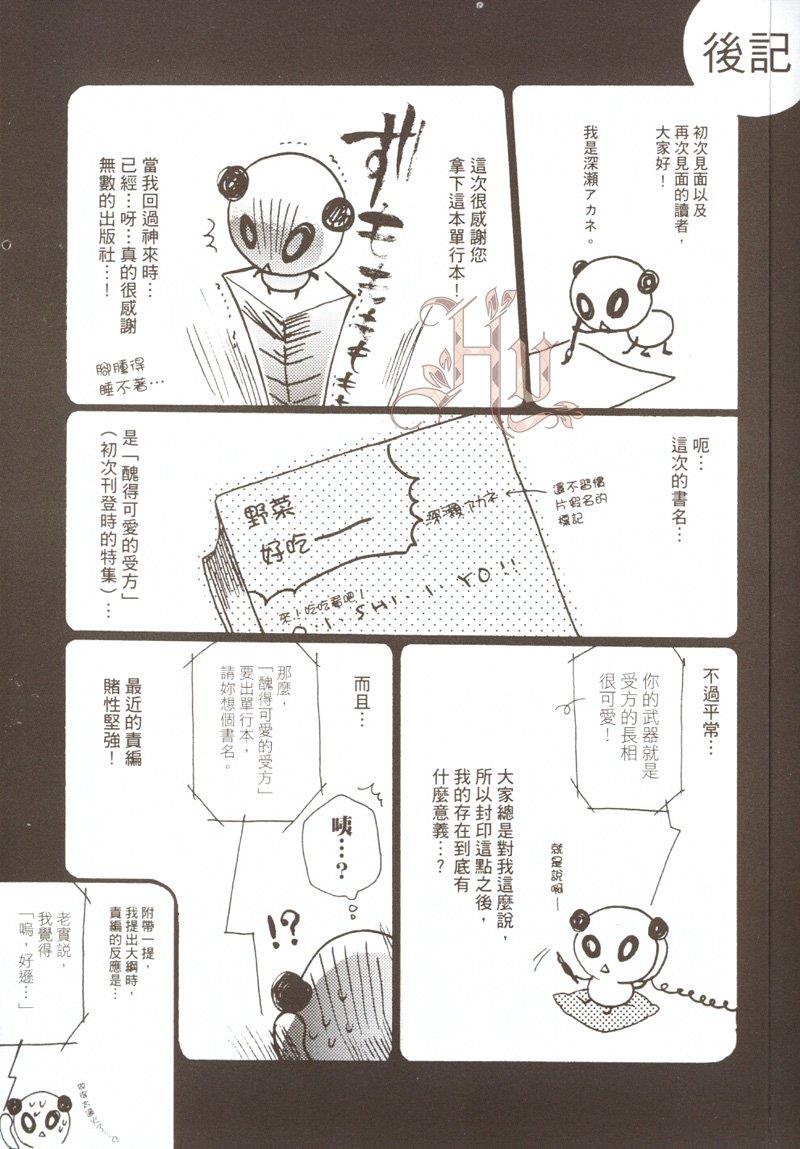 後記
初次見面以及
再次見面的讀者，
大家好！
我是深瀨アカネ。
這次很感謝您
拿下這本單行本！
ずモモモモモモ
當我回過神來時…
已經…呀…真的很感謝
無數的出版社…！
腳腫得
睡不著…
Hu
呃…
這次的書名…
還不習慣
片假名的
標記
深瀨アカネ
野菜
好吃——
來！吃吃看吧！
O・I・SHI・I・YO!!
是「醜得可愛的受方」
（初次刊登時的特集）…
不過平常…
你的武器就是
受方的長相
很可愛！
就是說啊—
大家總是對我這麼說，
所以封印這點之後，
我的存在到底有
什麼意義…？
而且…
那麼，
「醜得可愛的受方」
要出單行本，
請妳想個書名。
咦…？
!?
最近的責編
賭性堅強！
附帶一提，
我提出大綱時，
責編的反應是…
老實說，
我覺得
「嗚，好遜…」